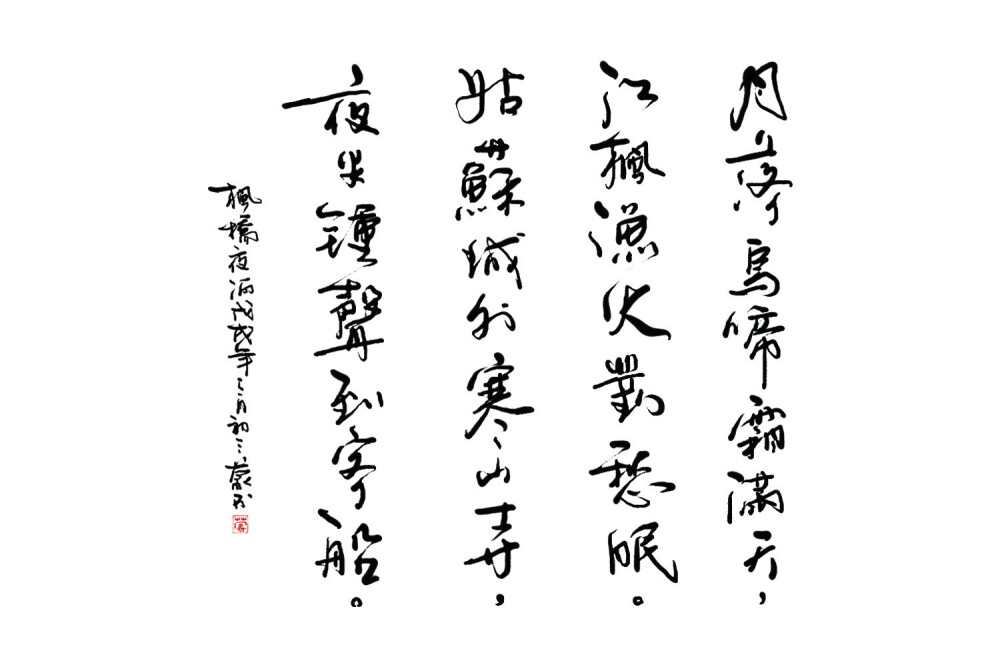 月落烏啼霜滿天，
江楓漁火對愁眠。
姑蘇城外寒山寺，
夜半鐘聲到客船。
楓橋夜泊戊戌年三月初三